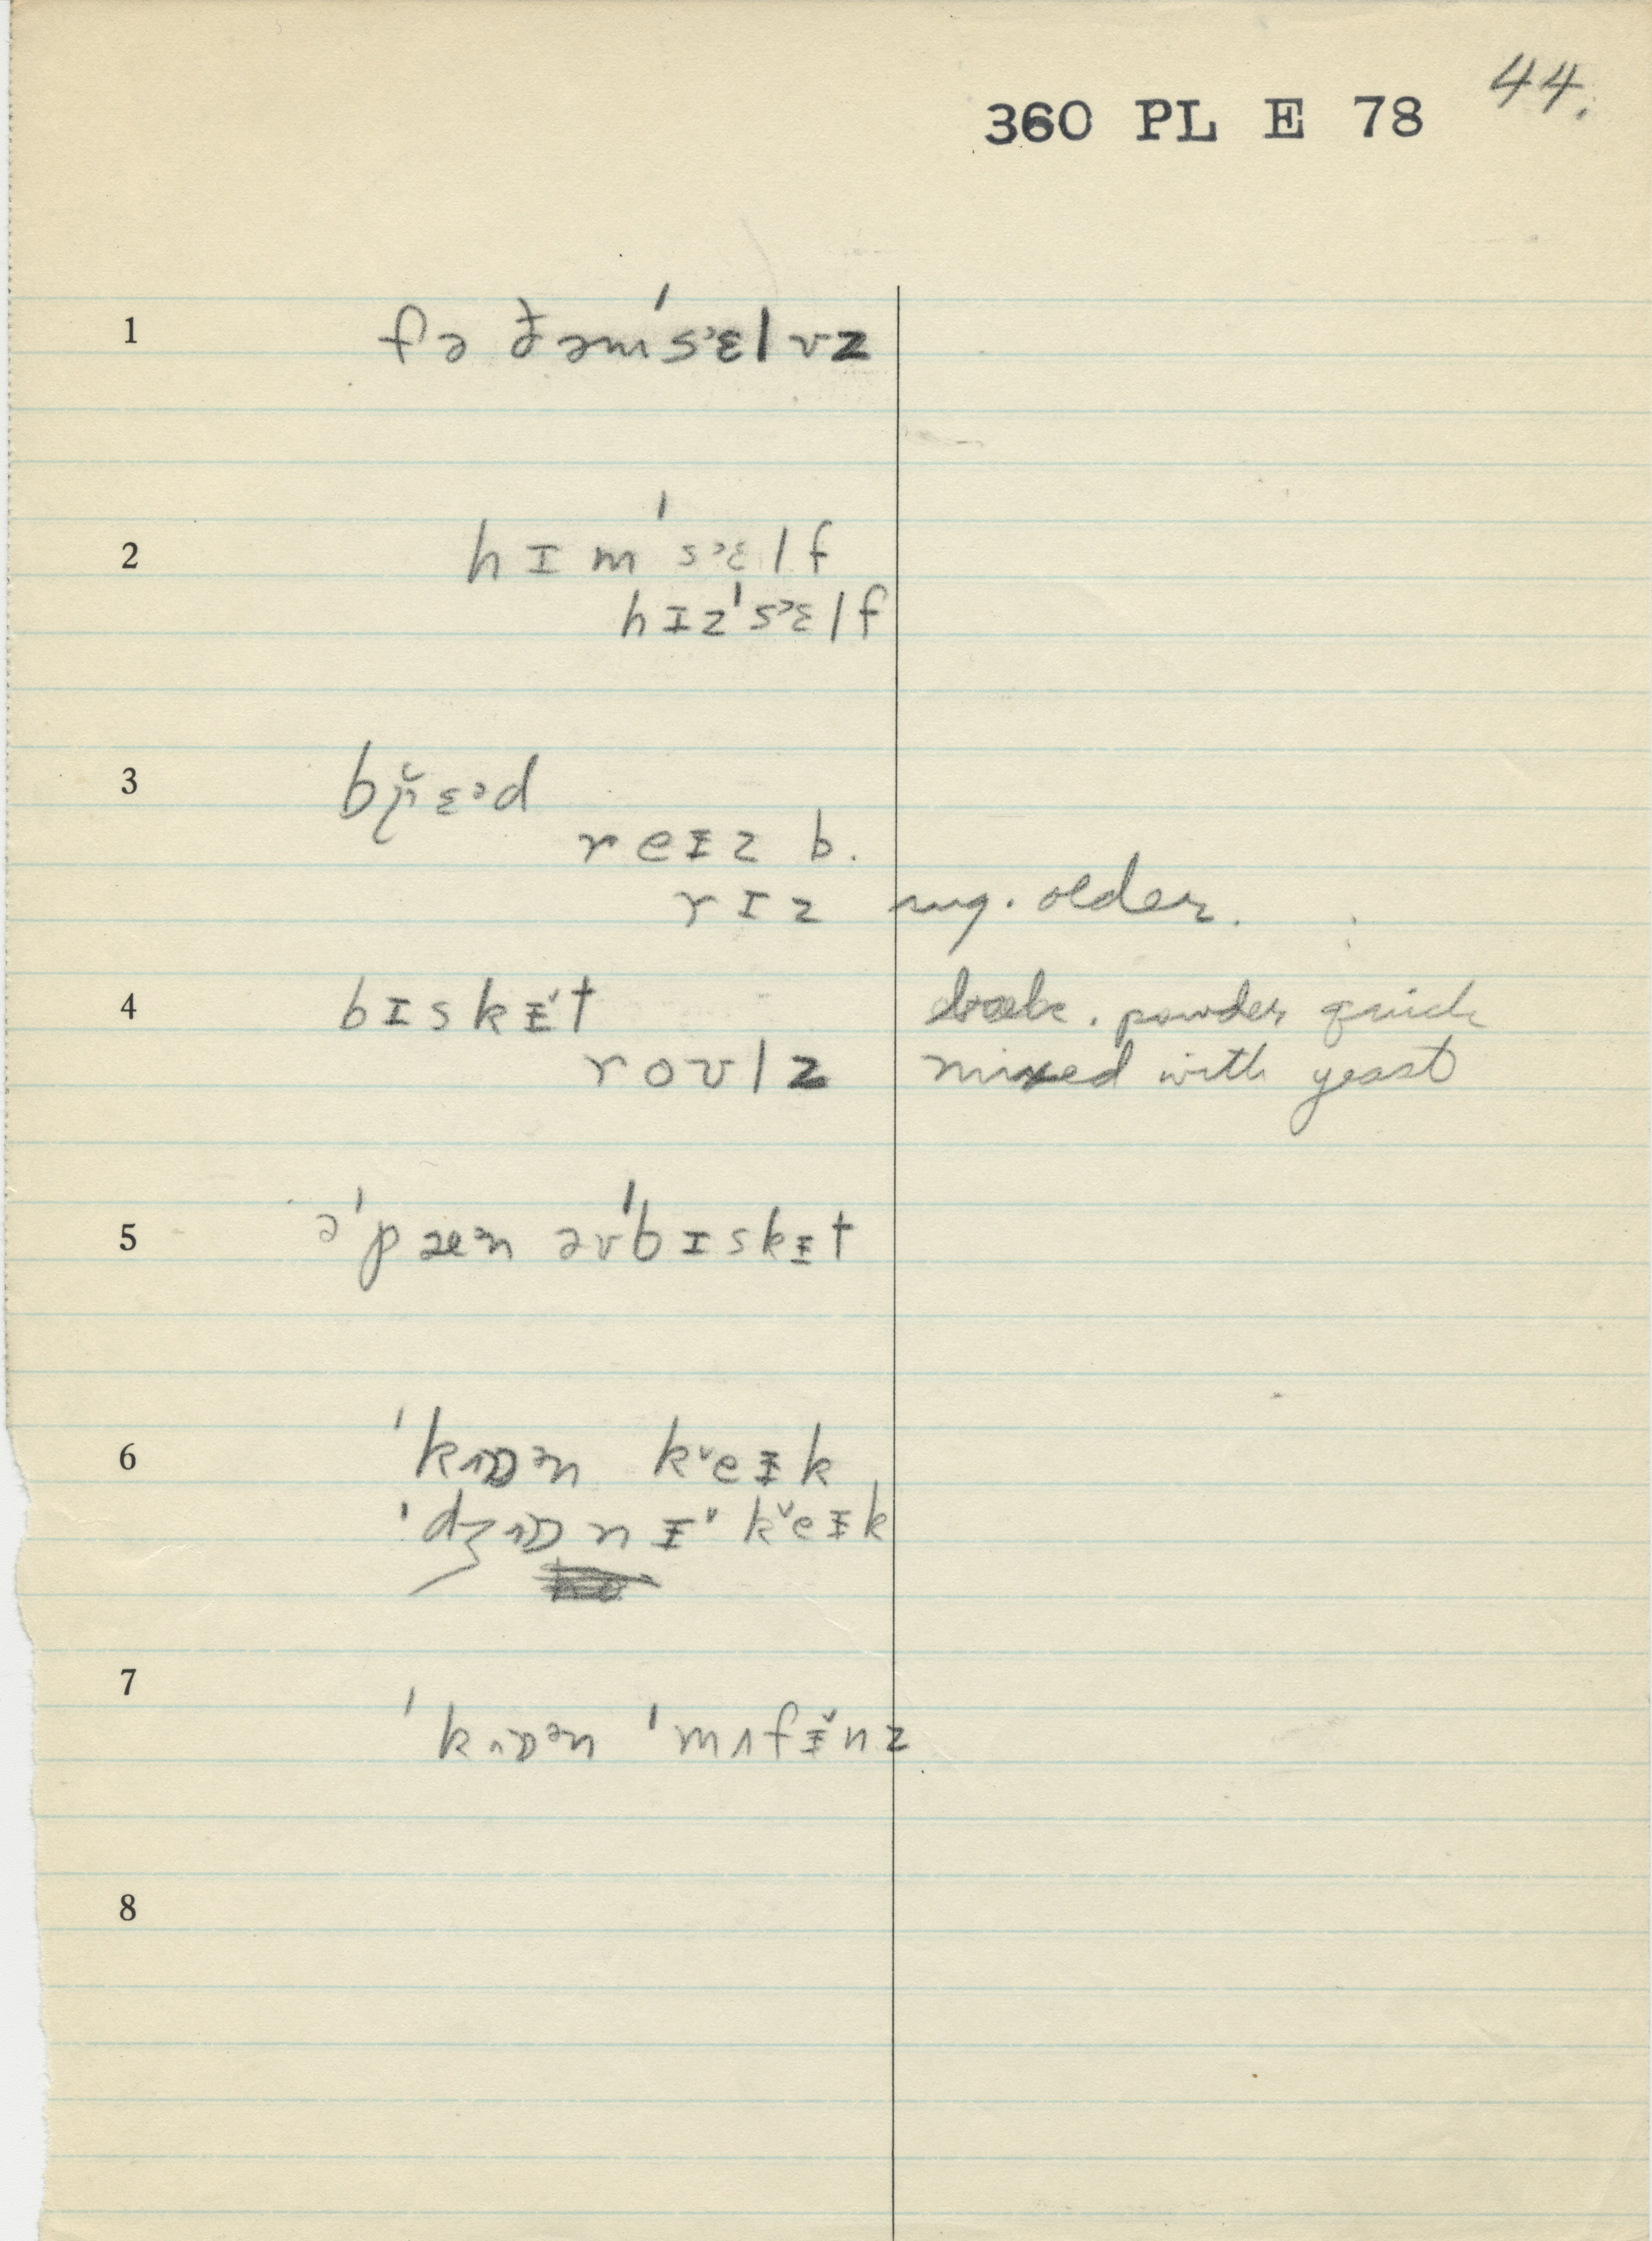 44.
360 PL E 78
1 fə ðəmˈsᵊɛlvz
2 hɪmˈsᵊɛlf
hɪzˈsᵊɛlf
3 bɛᵊd
reɪz b.
rɪz sug. older.
4 bɪskᵻ̌t powder quick
roʊlz mixed with yeast
5 əˈpæᵊn əvˈbɪskᵻt
6 ˈkɒᵊn k˅eᵻk
k˅eᵻk
7 ˈkɒᵊn ˈmʌfᵻ̌nz
8